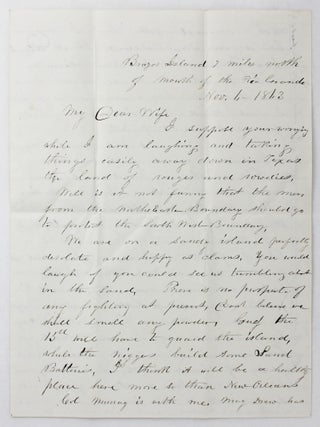 Brazos Island 7 miles north
of mouth of the Rio Grande
Nov. 6 - 1863
My Dear Wife
I suppose your worrying
while I am laughing and taking
things easily away down in Texas
the land of rouges and rowdies.
Well is it not funny that the man
from the North Eastern Boundary should go
to protect the South West Boundary,
We are on a sandy island perfectly
desolate and happy as clams. You would
laugh if you could see us tumbling about
in the sand. There is no prospect of
any fighting at present, don't believe we
shall smell any powder. Guess the
15th will have to guard the island,
while the niggers build some Sand
Batteries, I think it will be a healthy
place here more so than New Orleans
Col Murray is with me. Maj Drew has